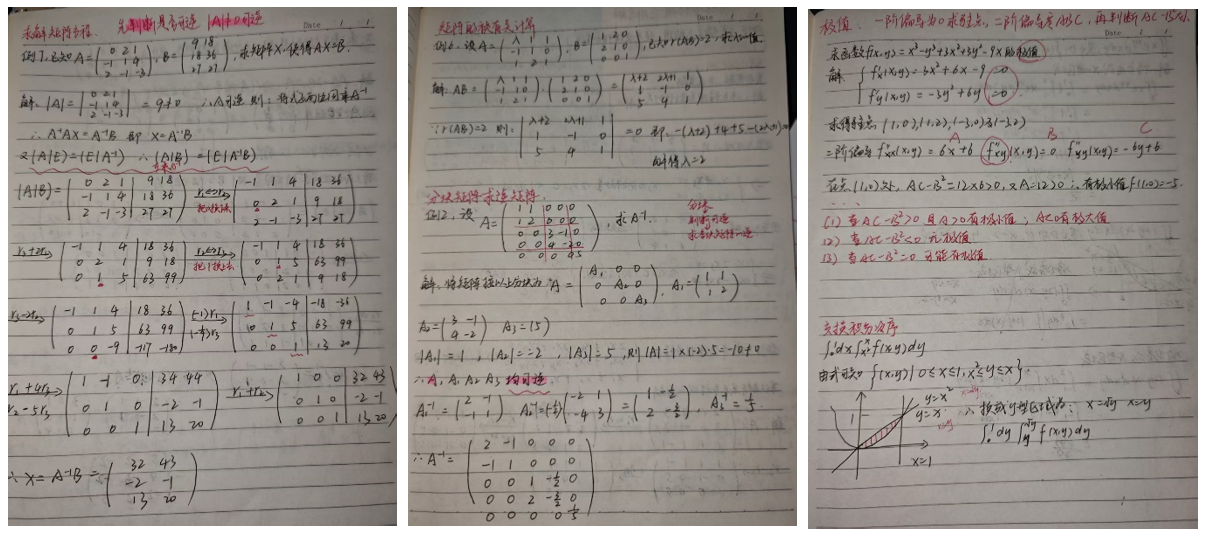 求解矩阵方程. 先判断是否可逆 |A|≠0可逆
Date
例7,已知A=(0 2 1 -1 1 4 2 -1 -3), B=(9 18 18 36 27 27), 求矩阵X使得AX=B.
解. |A|=|0 2 1 -1 1 4 2 -1 -3| = 9≠0 ∴A可逆 则:
∴ A⁻¹AX=A⁻¹B 即 X=A⁻¹B
又(A|E)=(E|A⁻¹) ∴(A|B)=(E|A⁻¹B)
(A|B)=(0 2 1 | 9 18
-1 1 4 | 18 36
2 -1 -3 | 27 27) r₁↔r₂ (-1 1 4 | 18 36
0 2 1 | 9 18
2 -1 -3 | 27 27)
r₃+2r₁ (-1 1 4 | 18 36
0 2 1 | 9 18
0 1 5 | 63 99) r₂↔r₃ (-1 1 4 | 18 36
0 1 5 | 63 99
0 2 1 | 9 18)
r₃-2r₂ (-1 1 4 | 18 36
0 1 5 | 63 99
0 0 -9 | -117 -180) (-1)r₁ (-1/9)r₃ (1 -1 -4 | -18 -36
0 1 5 | 63 99
0 0 1 | 13 20)
r₁+4r₃ r₂-5r₃ (1 -1 0 | 34 44
0 1 0 | -2 -1
0 0 1 | 13 20) r₁+r₂ (1 0 0 | 32 43
0 1 0 | -2 -1
0 0 1 | 13 20)
∴ X=A⁻¹B=(32 43
-2 -1
13 20)
Date
例6. 设A=(λ 1 1 -1 1 0 1 2 1), B=(1 2 0 2 1 0 0 0 1), 已知r(AB)=2,求λ的值.
解. AB=(λ 1 1 -1 1 0 1 2 1)·(1 2 0 2 1 0 0 0 1)=(λ+2 2λ+1 1 1 -1 0 5 4 1)
∵r(AB)=2 则:|λ+2 2λ+1 1
1 -1 0
5 4 1| =0 即.-(λ+2)+4+5-(2λ+1)=0
解得λ=2
分块矩阵求逆矩阵.
例2.设 A=(1 1 0 0 0
1 2 0 0 0
0 0 3 -1 0
0 0 4 -2 0
0 0 0 0 5), 求A⁻¹.
分块
判断可逆
解. 将矩阵按以上分块为A=(A₁ 0 0
0 A₂ 0
0 0 A₃), A₁=(1 1 1 2)
A₂=(3 -1 4 -2) A₃=(5)
|A₁|=1, |A₂|=-2, |A₃|=5, 则|A|=1×(-2)·5=-10≠0
∴A, A₁ A₂ A₃ 均可逆
A₁⁻¹=(2 -1 -1 1) A₂⁻¹=(-1/2)(-2 1 -4 3)=(1 -1/2 2 -3/2), A₃⁻¹=1/5
∴A⁻¹=(2 -1 0 0 0
-1 1 0 0 0
0 0 1 -1/2 0
0 0 2 -3/2 0
0 0 0 0 1/5)
极值. 一阶偏导为0求驻点,二阶偏导定ABC, 再判断AC-B²
Date
求函数f(x,y)=x³-y³+3x²+3y²-9x的极值
解. {f'x(x,y)=3x²+6x-9=0
f'y(x,y)=-3y²+6y=0
求得驻点 (1,0),(1,2),(-3,0),(-3,2)
A B C
二阶偏导 f''xx(x,y)=6x+6 f''xy(x,y)=0 f''yy(x,y)=-6y+6
在点(1,0)处, AC-B²=12×6>0,又A=12>0 ∴有极小值f(1,0)=-5.
....
(1) 当AC-B²>0 且A>0有极小值; A<0有极大值
(2) 当AC-B²<0 无极值
(3) 当AC-B²=0 可能有极值
交换积分次序
∫₀¹dx∫ₓ²ˣf(x,y)dy
由式可知 {(x,y)|0≤x≤1, x²≤y≤x}.
y=x²
y=x
x=1
∴ 换成y型区域为: x=√y x=y
∫₀¹dy∫_y^√y f(x,y)dy